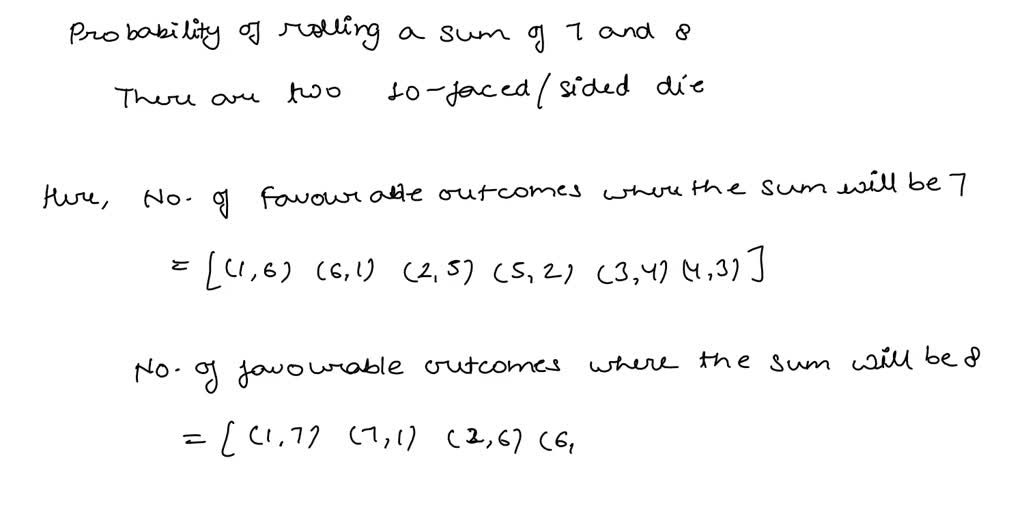 Probability of rolling a sum of 7 and 8
There are two 10-faced/sided die
Here, No. of favourable outcomes where the sum will be 7
= [(1,6) (6,1) (2,5) (5,2) (3,4) (4,3)]
No. of favourable outcomes where the sum will be 8
= [(1,7) (7,1) (2,6) (6,